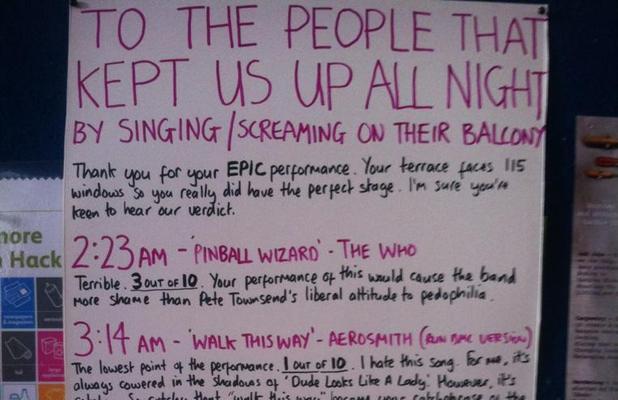 TO THE PEOPLE THAT
KEPT US UP ALL NIGHT
BY SINGING/SCREAMING ON THEIR BALCONY
Thank you for your EPIC performance. Your terrace faces 115
windows so you really did have the perfect stage. I'm sure you're
keen to hear our verdict.
2:23AM - 'PINBALL WIZARD' - THE WHO
Terrible. 3 OUT OF 10. Your performance of this would cause the band
more shame than Pete Townsend's liberal attitude to pedophilia.
3:14 AM - 'WALK THIS WAY' - AEROSMITH (RUN DMC VERSION)
The lowest point of the performance. 1 OUT OF 10. I hate this song. For me, it's
always covered in the shadows of 'Dude Looks Like A Lady'. However, it's
more
Hack